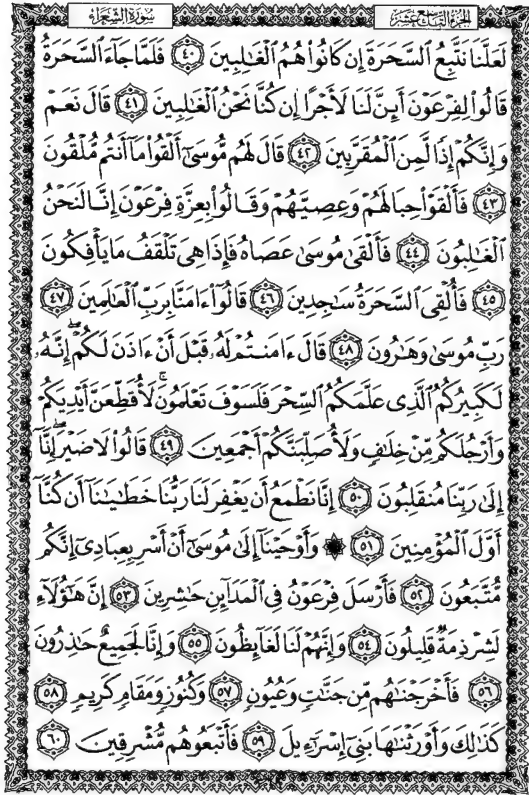 الجزء التاسع عشر
سورة الشعراء
لَعَلَّنَا نَتَّبِعُ السَّحَرَةَ إِن كَانُوا۟ هُمُ الْغَٰلِبِينَ ٤٠ فَلَمَّا جَآءَ السَّحَرَةُ
قَالُوا۟ لِفِرْعَوْنَ أَئِنَّ لَنَا لَأَجْرًا إِن كُنَّا نَحْنُ الْغَٰلِبِينَ ٤١ قَالَ نَعَمْ
وَإِنَّكُمْ إِذًا لَّمِنَ الْمُقَرَّبِينَ ٤٢ قَالَ لَهُم مُّوسَىٰٓ أَلْقُوا۟ مَآ أَنتُم مُّلْقُونَ
٤٣ فَأَلْقَوْا۟ حِبَالَهُمْ وَعِصِيَّهُمْ وَقَالُوا۟ بِعِزَّةِ فِرْعَوْنَ إِنَّا لَنَحْنُ
الْغَٰلِبُونَ ٤٤ فَأَلْقَىٰ مُوسَىٰ عَصَاهُ فَإِذَا هِىَ تَلْقَفُ مَا يَأْفِكُونَ
٤٥ فَأُلْقِىَ السَّحَرَةُ سَٰجِدِينَ ٤٦ قَالُوٓا۟ ءَامَنَّا بِرَبِّ الْعَٰلَمِينَ ٤٧
رَبِّ مُوسَىٰ وَهَٰرُونَ ٤٨ قَالَ ءَامَنتُمْ لَهُۥ قَبْلَ أَنْ ءَاذَنَ لَكُمْ ۖ إِنَّهُۥ
لَكَبِيرُكُمُ الَّذِى عَلَّمَكُمُ السِّحْرَ فَلَسَوْفَ تَعْلَمُونَ ۚ لَأُقَطِّعَنَّ أَيْدِيَكُمْ
وَأَرْجُلَكُم مِّنْ خِلَٰفٍ وَلَأُصَلِّبَنَّكُمْ أَجْمَعِينَ ٤٩ قَالُوا۟ لَا ضَيْرَ ۖ إِنَّآ
إِلَىٰ رَبِّنَا مُنقَلِبُونَ ٥٠ إِنَّا نَطْمَعُ أَن يَغْفِرَ لَنَا رَبُّنَا خَطَٰيَٰنَآ أَن كُنَّآ
أَوَّلَ الْمُؤْمِنِينَ ٥١ ۞ وَأَوْحَيْنَآ إِلَىٰ مُوسَىٰٓ أَنْ أَسْرِ بِعِبَادِىٓ إِنَّكُم
مُّتَّبَعُونَ ٥٢ فَأَرْسَلَ فِرْعَوْنُ فِى الْمَدَآئِنِ حَٰشِرِينَ ٥٣ إِنَّ هَٰٓؤُلَآءِ
لَشِرْذِمَةٌ قَلِيلُونَ ٥٤ وَإِنَّهُمْ لَنَا لَغَآئِظُونَ ٥٥ وَإِنَّا لَجَمِيعٌ حَٰذِرُونَ
٥٦ فَأَخْرَجْنَٰهُم مِّن جَنَّٰتٍ وَعُيُونٍ ٥٧ وَكُنُوزٍ وَمَقَامٍ كَرِيمٍ ٥٨
كَذَٰلِكَ وَأَوْرَثْنَٰهَا بَنِىٓ إِسْرَٰٓءِيلَ ٥٩ فَأَتْبَعُوهُم مُّشْرِقِينَ ٦٠